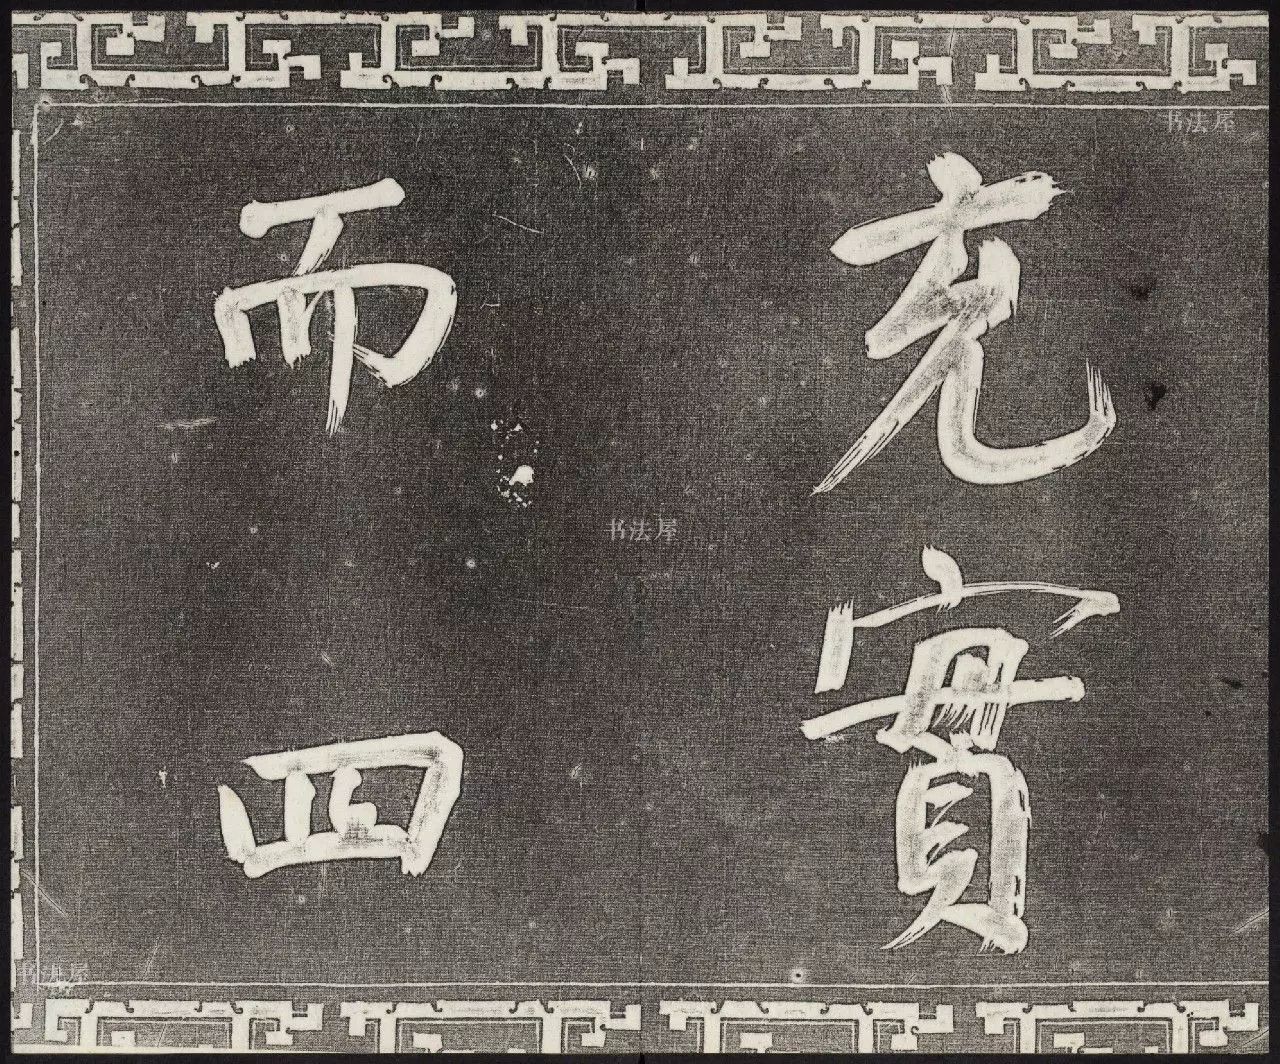 充實
而四
书法屋
书法屋
书法屋